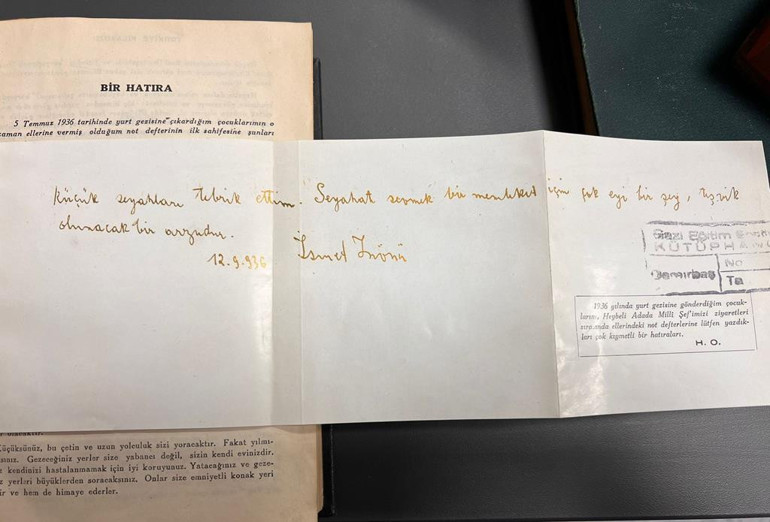 BİR HATIRA
5 Temmuz 1936 tarihinde yurt gezisine çıkardığım çocuklarımın o
zaman ellerine vermiş olduğum not defterinin ilk sahifesine şunları
küçük seyahları tebrik ettim. Seyahat sevmek bir memleket için çok eyi bir şey, teşvik
olunacak bir arzudur.
12.9.936 İsmet İnönü
Gazi Eğitim
KÜTÜPHAN
No
Demirbaş
Ta
1936 yılında yurt gezisine gönderdiğim çocuk-
ların, Heybeli Adada Millî Şef'imizi ziyaretleri
sırasında ellerindeki not defterlerine lütfen yazdık-
ları çok kıymetli bir hatıraları.
H. O.
Küçüksünüz, bu çetin ve uzun yolculuk sizi yoracaktır. Fakat yılmı-
sınız. Gezeceğiniz yerler size yabancı değil, sizin kendi evinizdir.
z kendinizi hastalanmamak için iyi koruyunuz. Yatacağınız ve geze-
z yerleri büyüklerden soracaksınız. Onlar size emniyetli konak yeri
ir ve hem de himaye ederler.